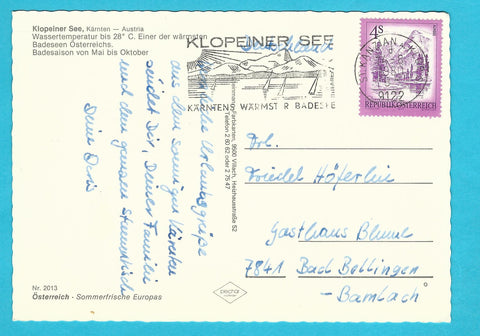 Klopeiner See, Kärnten — Austria
Wassertemperatur bis 28° C. Einer der wärmsten
Badeseen Österreichs.
Badesaison von Mai bis Oktober
KLOPEINER SEE
KÄRNTENS WÄRMSTER BADESEE
Deutschland
4S
REPUBLIK ÖSTERREICH
ST. KANZIAN
9122
Urlaubsgrüße
aus dem sonnigen Kärnten
sendet Dir, Deiner Familie
und dem ganzen Stammtisch
Deine Doris
Farbkarten, 9500 Villach, Heizhausstraße 52
Telefon
Frl.
Friedel Höferlin
Gasthaus Blume
7841 Bad Bellingen
- Bamlach
Nr. 2013
Österreich - Sommerfrische Europas